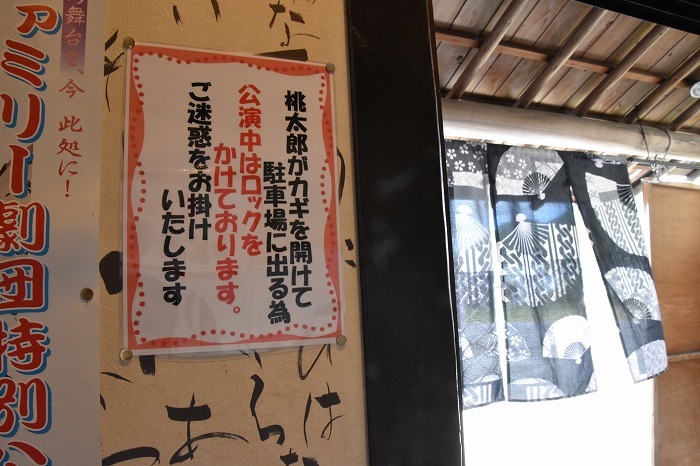 桃太郎がカギを開けて
駐車場に出る為
公演中はロックを
かけております。
ご迷惑をお掛け
いたします
舞台を、今 此処に!
ァミリー劇団特別公